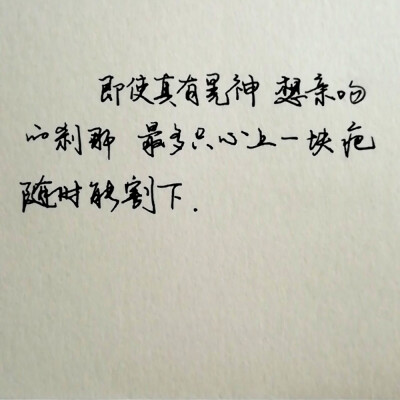 即使真有晃神 想亲吻
的刹那 最多只心上一块疤
随时能割下.